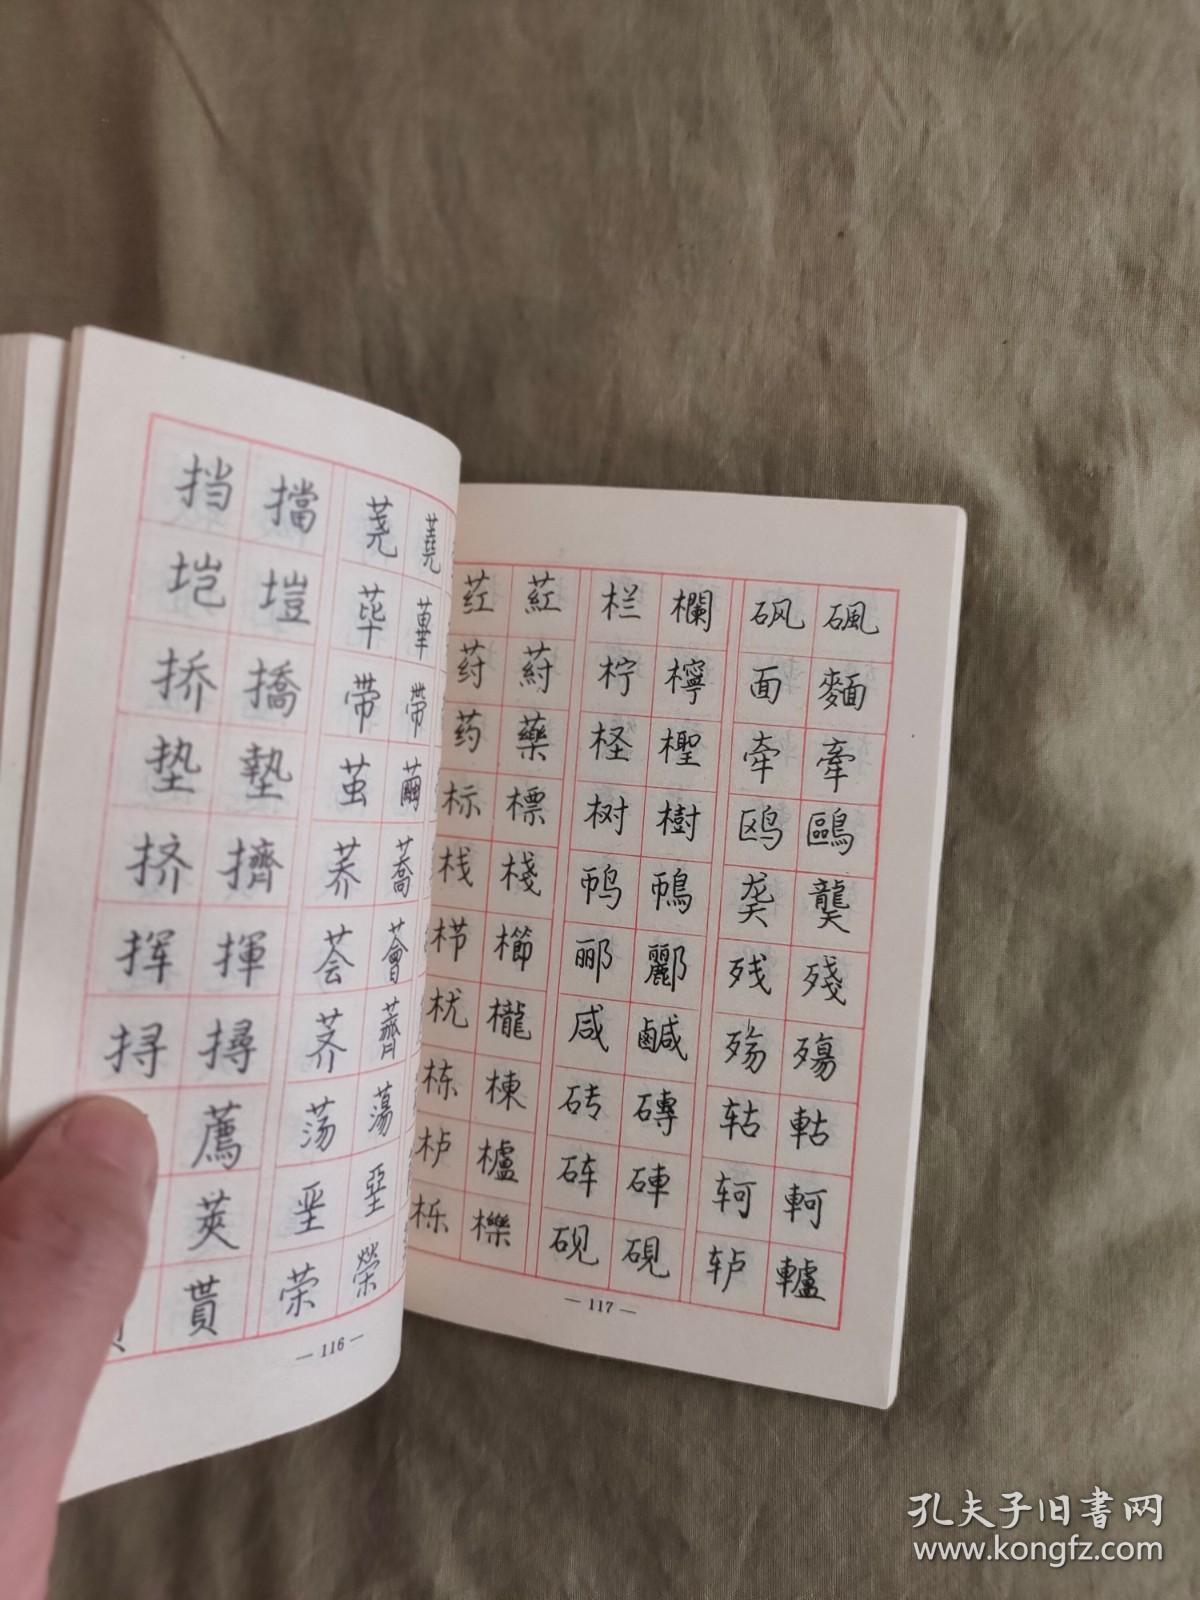 挡 擋 荛 蕘
垲 塏 荜 蓽
挢 撟 带 帶
垫 墊 茧 繭
挤 擠 荞 蕎
挥 揮 荟 薈
挦 撏 荠 薺
薦 荡 蕩
莢 垩 堊
貰 荣 榮
— 116 —
荭 葒 栏 欄 砜 碸
荮 葤 柠 檸 面 麵
药 藥 柽 檉 牵 牽
标 標 树 樹 鸥 鷗
栈 棧 鸸 鴯 龚 龔
栉 櫛 郦 酈 残 殘
栊 櫳 咸 鹹 殇 殤
栋 棟 砖 磚 轱 軲
栌 櫨 砗 硨 轲 軻
栎 櫟 砚 硯 轳 轤
— 117 —
孔夫子旧书网
www.kongfz.com